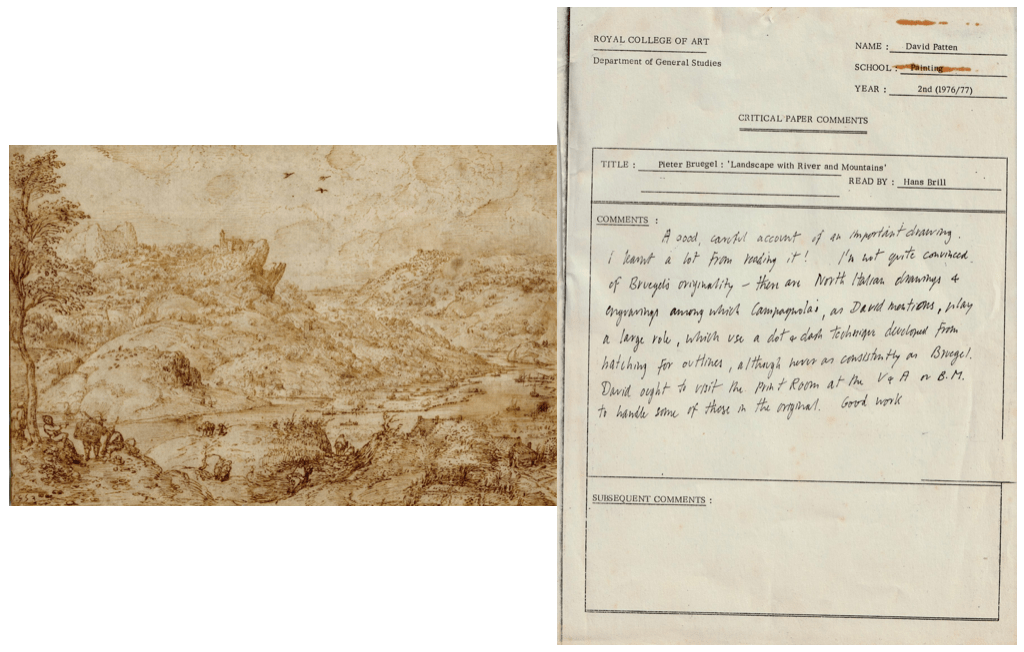 ROYAL COLLEGE OF ART
Department of General Studies
NAME : David Patten
SCHOOL : Painting
YEAR : 2nd (1976/77)
CRITICAL PAPER COMMENTS
TITLE : Pieter Bruegel : 'Landscape with River and Mountains'
READ BY : Hans Brill
COMMENTS :
A good, careful account of an important drawing.
I learnt a lot from reading it! I'm not quite convinced
of Bruegel's originality – there are North Italian drawings &
engravings among which Campagnola's, as David mentions, play
a large role, which use a dot & dash technique developed from
hatching for outlines, although never as consistently as Bruegel.
David ought to visit the Print Room at the V & A or B.M.
to handle some of those in the original. Good work
SUBSEQUENT COMMENTS :